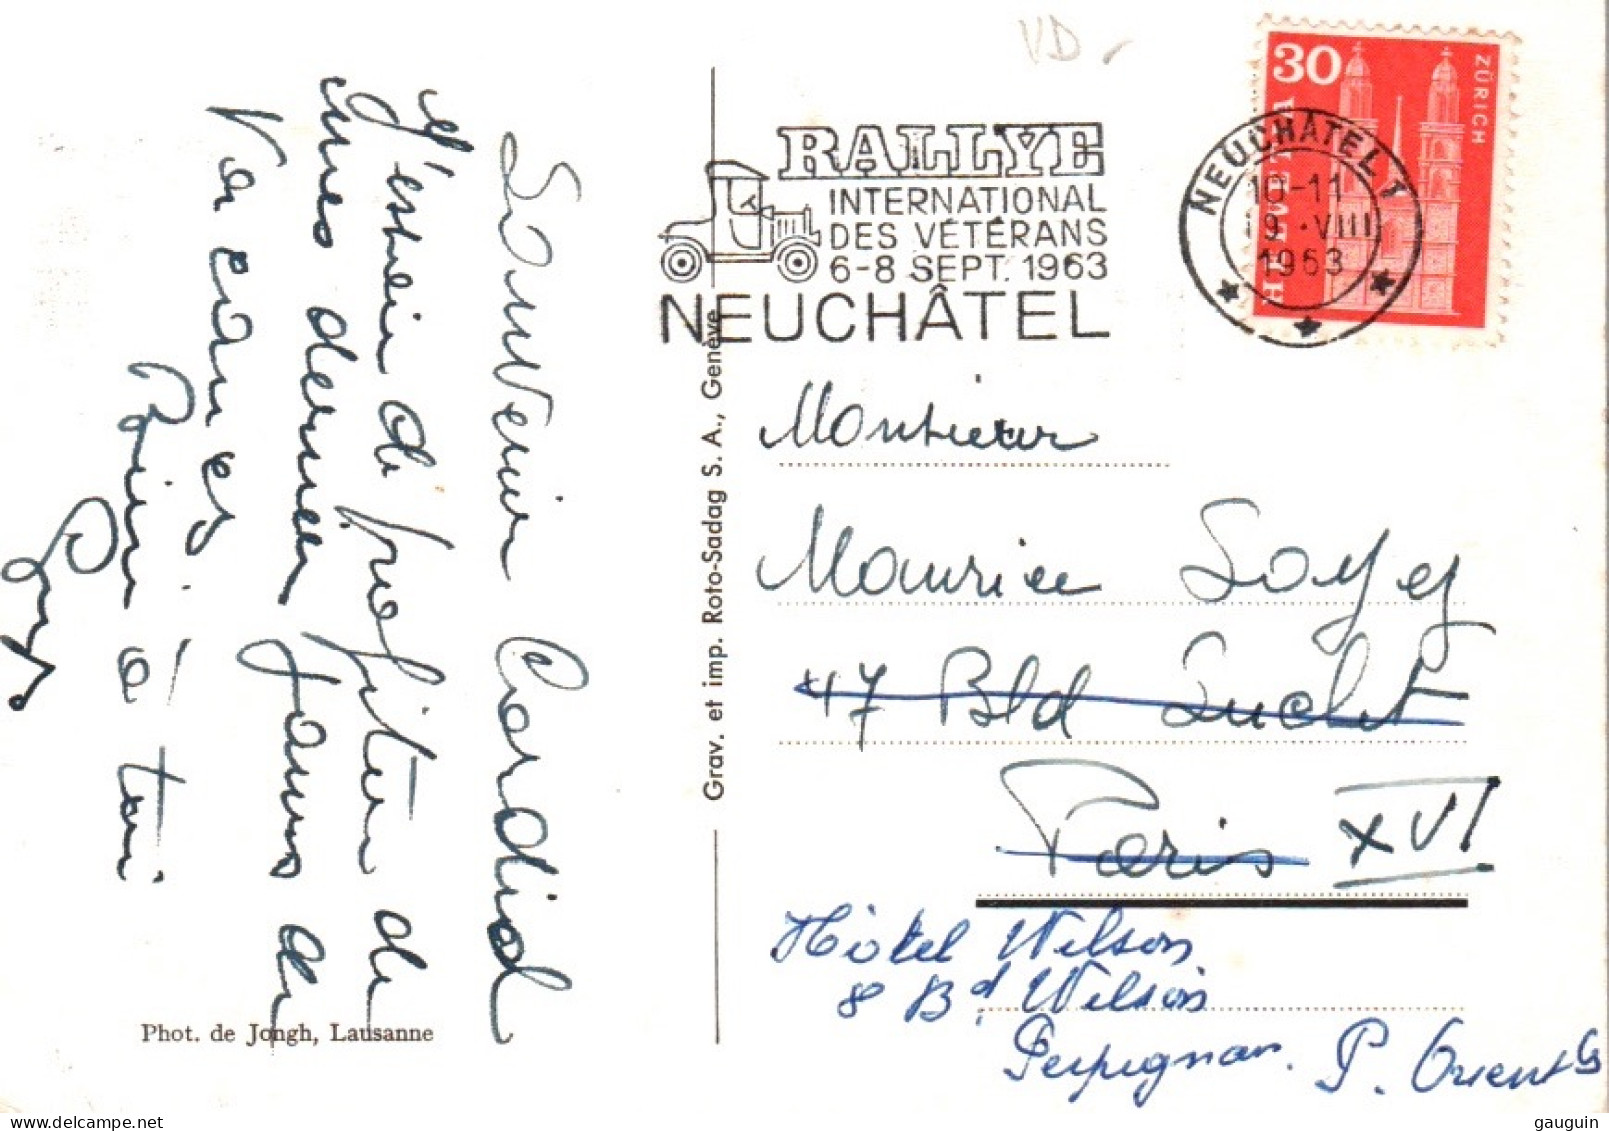 VD -
30
ZÜRICH
HELVETIA
NEUCHÂTEL 1
10-11
19.-VIII
1963
RALLYE
INTERNATIONAL
DES VÉTÉRANS
6-8 SEPT. 1963
NEUCHÂTEL
Souvenir Cordial
J'espère profiter de
mes derniers jours de
Vacances
Bien à toi
Grav. et imp. Roto-Sadag S. A., Genève
Phot. de Jongh, Lausanne
Monsieur
Maurice Soyez
47 Bld Suchet
Paris XVI
Hôtel Wilson
8 Bd Wilson
Perpignan. P. Orientles
gauguin ©delcampe.net